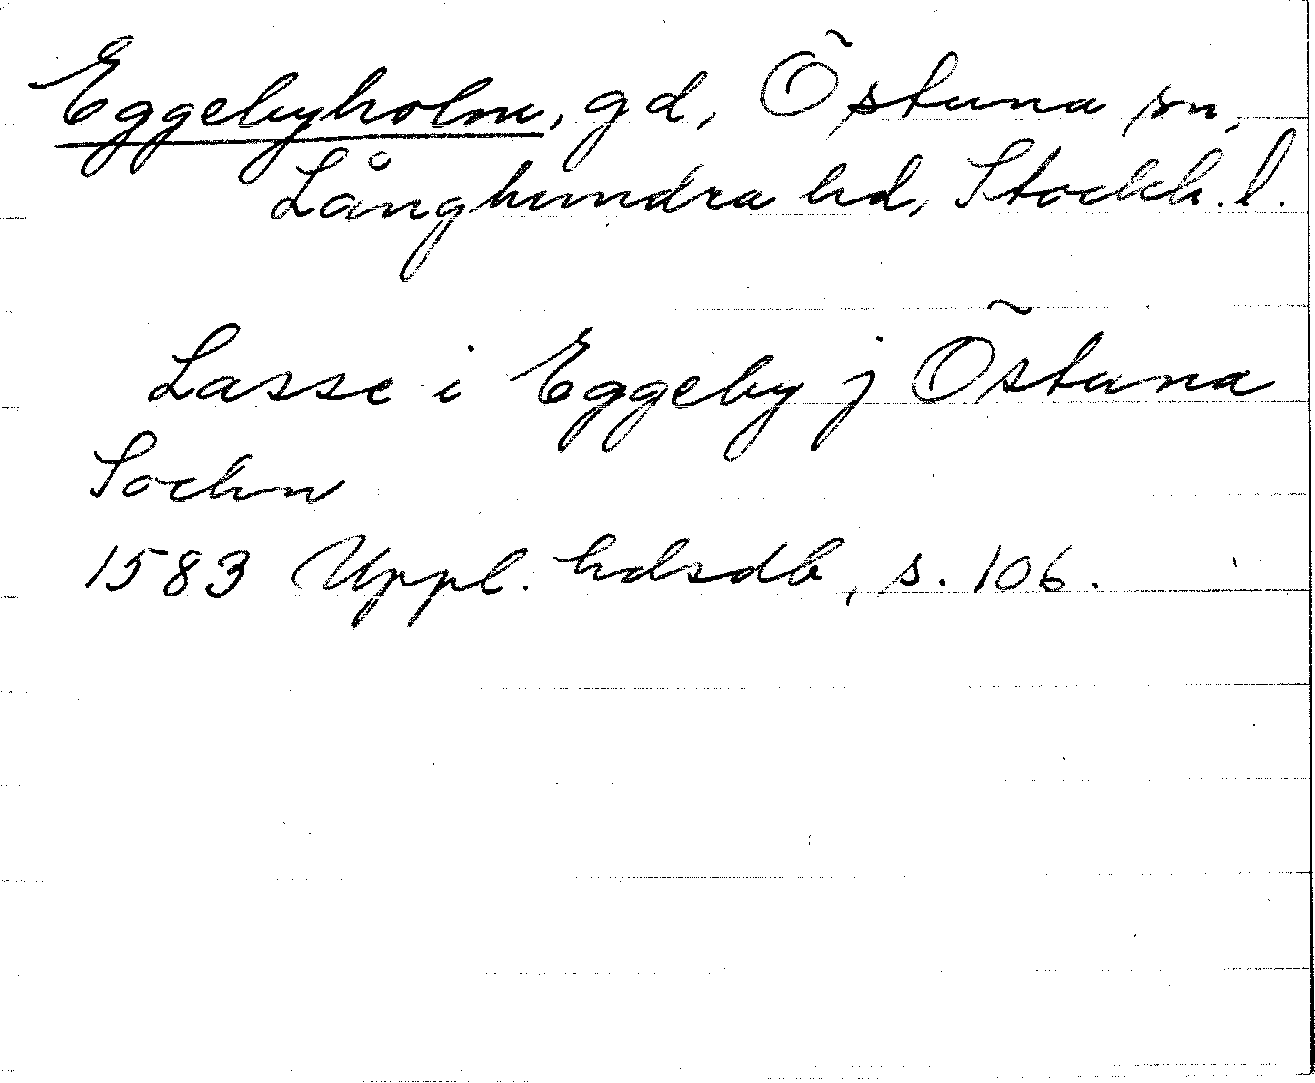 Eggebyholm, gd, Östuna sn,
Långhundra hd, Stockh. l.
Lasse i Eggeby j Östuna
Sochn
1583 Uppl. hdsdb, s. 106.